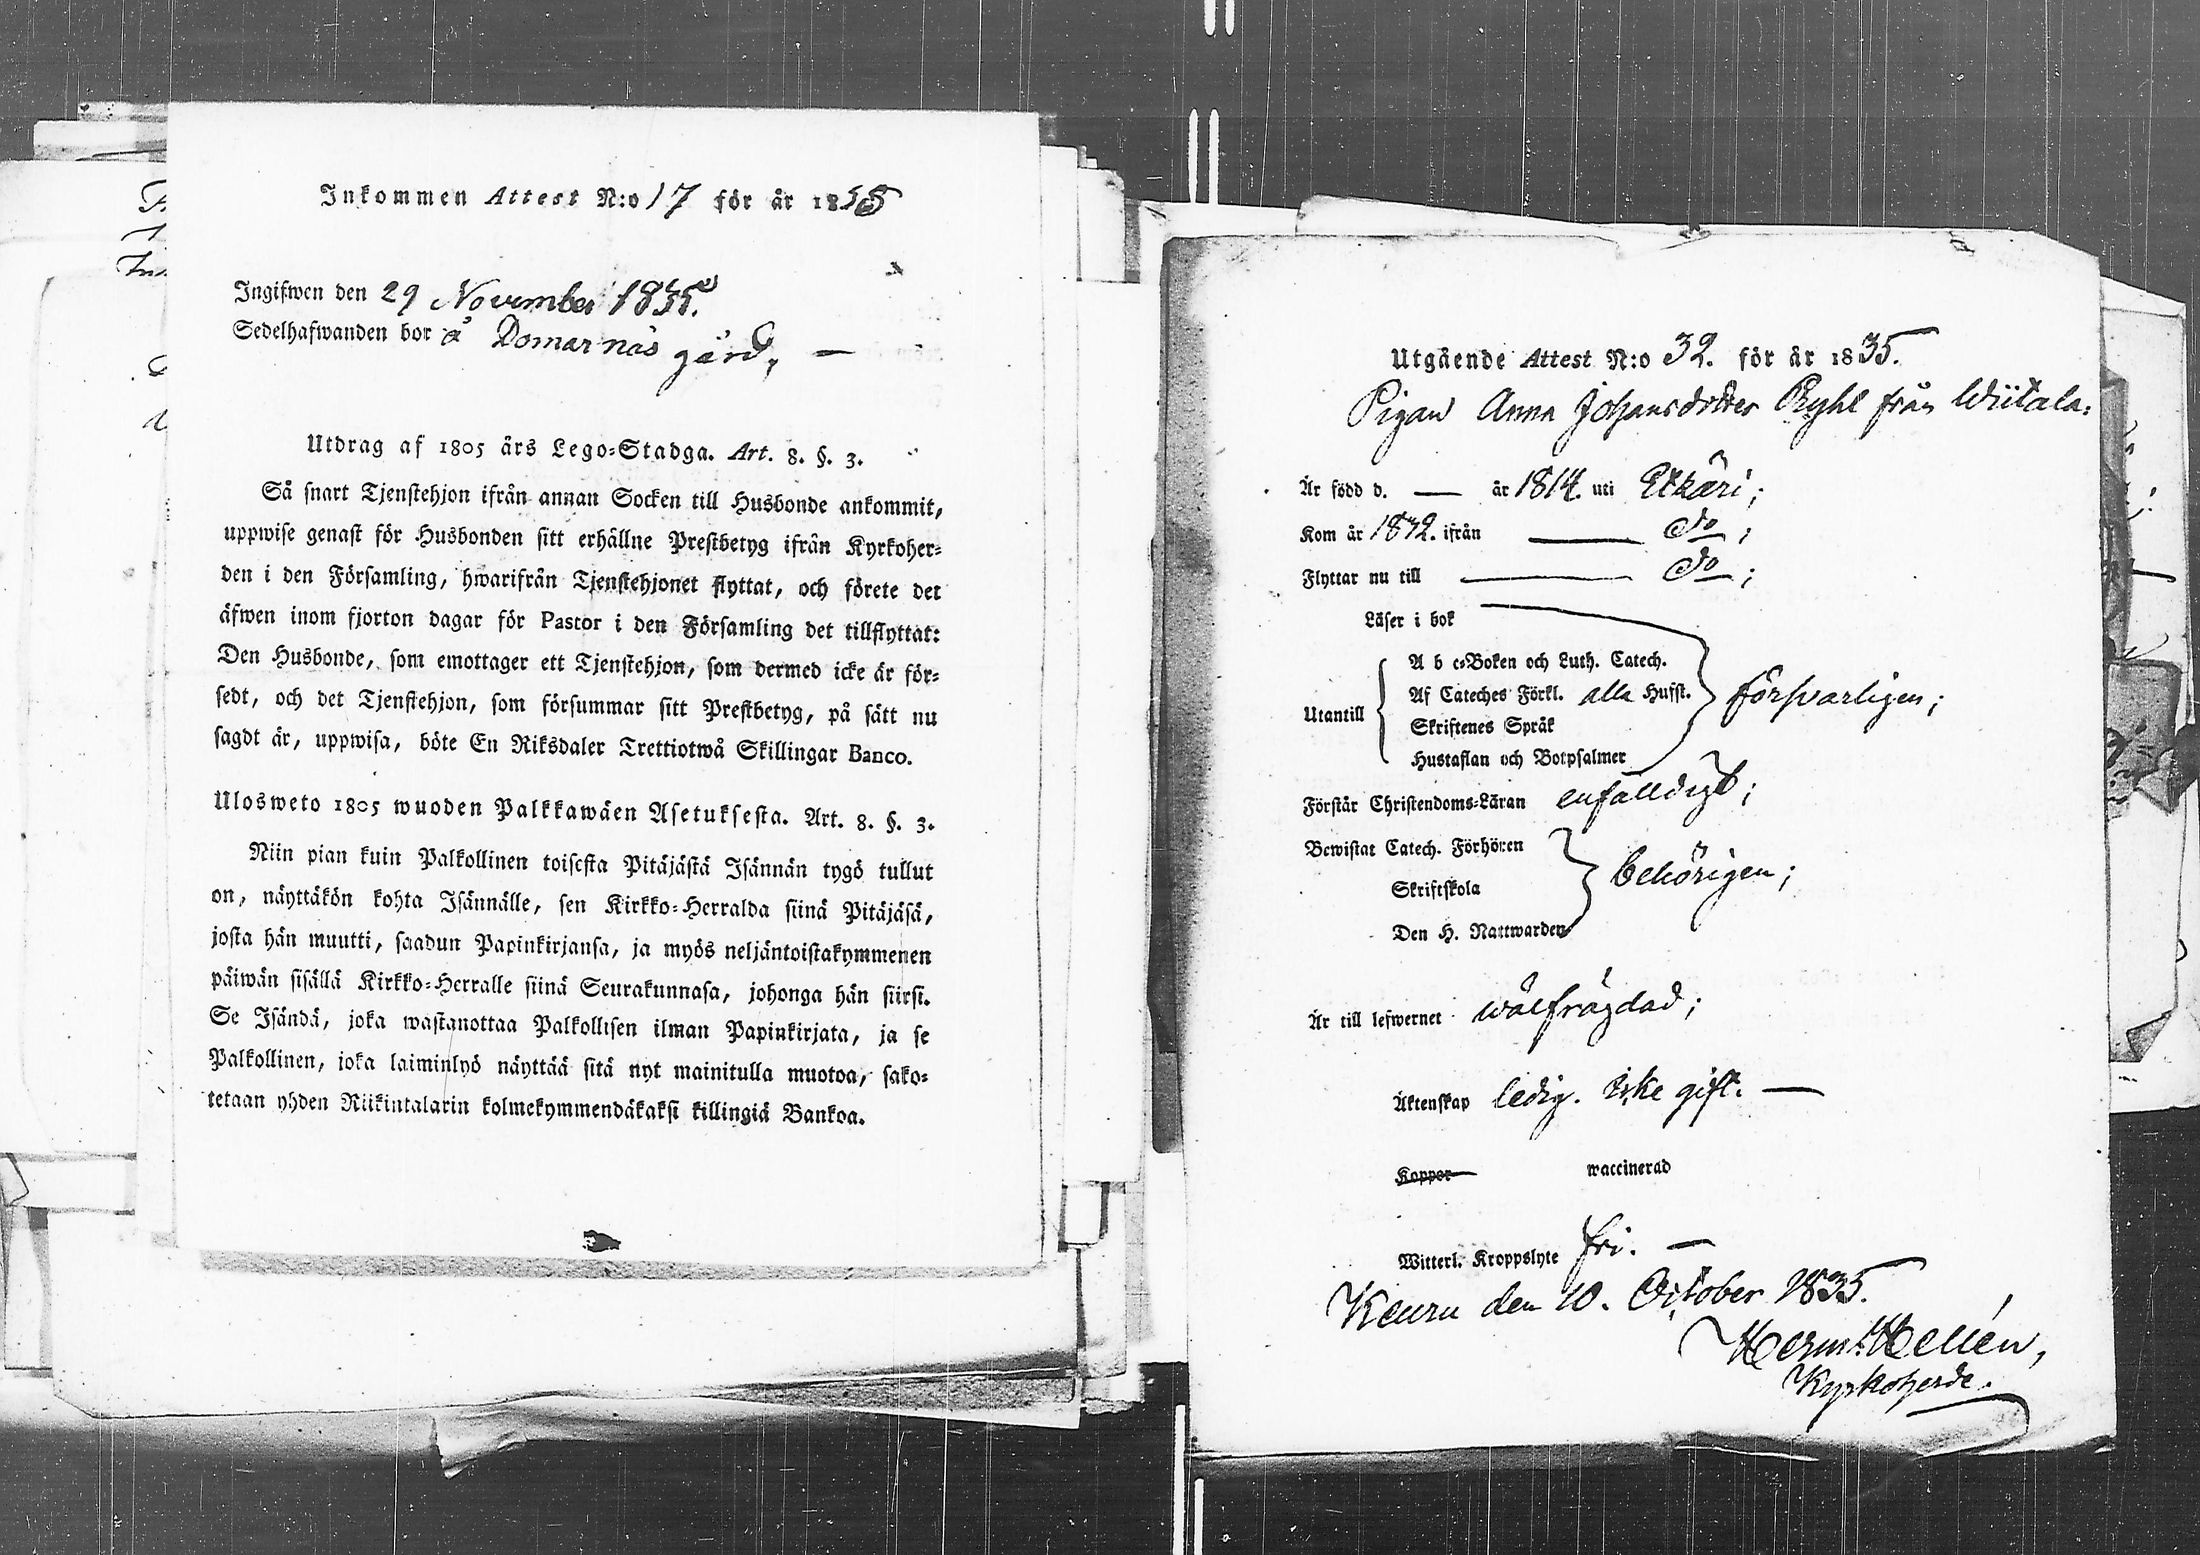 Inkommen Attest N:o 17 för år 1835
Ingifwen den 29 November 1835.
Sedelhafwanden bor å Domarnäs gård,
Utdrag af 1805 års Lego-Stadga. Art. 8. §. 3.
Så snart Tjenstehjon ifrån annan Socken till Husbonde ankommit,
uppwise genast för Husbonden sitt erhållne Prestbetyg ifrån Kyrkoher-
den i den Församling, hwarifrån Tjenstehjonet flyttat, och förete det
äfwen inom fjorton dagar för Pastor i den Församling det tillflyttat:
Den Husbonde, som emottager ett Tjenstehjon, som dermed icke är för-
sedt, och det Tjenstehjon, som försummar sitt Prestbetyg, på sätt nu
sagdt är, uppwisa, böte En Riksdaler Trettiotwå Skillingar Banco.
Ulosweto 1805 wuoden Palkkawäen Asetuksesta. Art. 8. §. 3.
Niin pian kuin Palkollinen toisesta Pitäjästä Isännän tygö tullut
on, näyttäkön kohta Isännälle, sen Kirkko-Herralda siinä Pitäjäsä,
josta hän muutti, saadun Papinkirjansa, ja myös neljäntoistakymmenen
päiwän sisällä Kirkko-Herralle siinä Seurakunnasa, johonga hän siirsi.
Se Isändä, joka wastanottaa Palkollisen ilman Papinkirjata, ja se
Palkollinen, joka laiminlyö näyttää sitä nyt mainitulla muotoa, sako-
tetaan yhden Riikintalarin kolmekymmendäkaksi killingiä Bankoa.
Utgående Attest N:o 32. för år 1835.
Pigan Anna Johansdotter Ryhl från Wiitala:
Är född d. — år 1814. uti Etzäri;
Kom år 1832. ifrån — do;
Flyttar nu till — do;
Läser i bok
A b c-Boken och Luth. Catech.
Utantill { Af Cateches Förkl. alla Hufst. } försvarligen;
Skriftenes Språk
Hustaflan och Botpsalmer
Förstår Christendoms-Läran enfalldigt;
Bewistat Catech. Förhören
Skriftskola } behörigen;
Den H. Nattwarden
Är till lefwernet wälfrägdad;
Äktenskap ledig. icke gift. —
Koppor waccinerad
Witterl. Kroppslyte fri. —
Keuru den 10. October 1835.
Herm. Hellén,
Kyrkoherde.